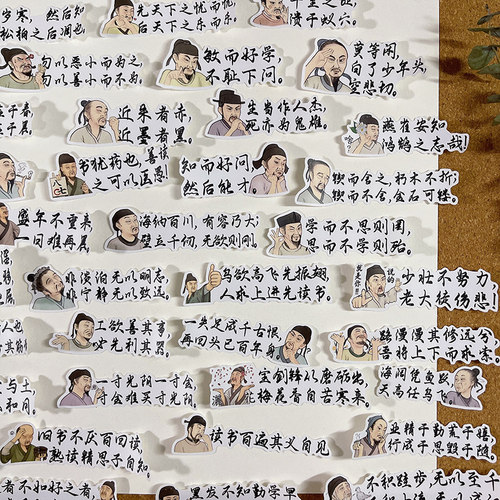 岁寒，然后知
松柏之后凋也
先天下之忧而忧，
后天下之乐而乐。
千里之堤，
溃于蚁穴。
勿以恶小而为之，
勿以善小而不为。
敏而好学，
不耻下问。
莫等闲，
白了少年头，
空悲切。
近朱者赤，
近墨者黑。
生当作人杰，
死亦为鬼雄。
燕雀安知
鸿鹄之志哉！
书犹药也，善读
之可以医愚
知而好问，
然后能才
锲而舍之，朽木不折；
锲而不舍，金石可镂。
盛年不重来，
一日难再晨
海纳百川，有容乃大；
壁立千仞，无欲则刚。
学而不思则罔，
思而不学则殆。
非淡泊无以明志，
非宁静无以致远。
鸟欲高飞先振翅，
人求上进先读书。
少壮不努力
老大徒伤悲！
工欲善其事，
必先利其器。
一失足成千古恨，
再回头已百年身
路漫漫其修远兮
吾将上下而求索
一寸光阴一寸金，
寸金难买寸光阴。
宝剑锋从磨砺出，
梅花香自苦寒来。
海阔凭鱼跃，
天高任鸟飞
旧书不厌百回读，
熟读精思子自知。
读书百遍其义自见
业精于勤荒于嬉
行成于思毁于随
者不如好之者，
黑发不知勤学早
不积跬步，无以至千